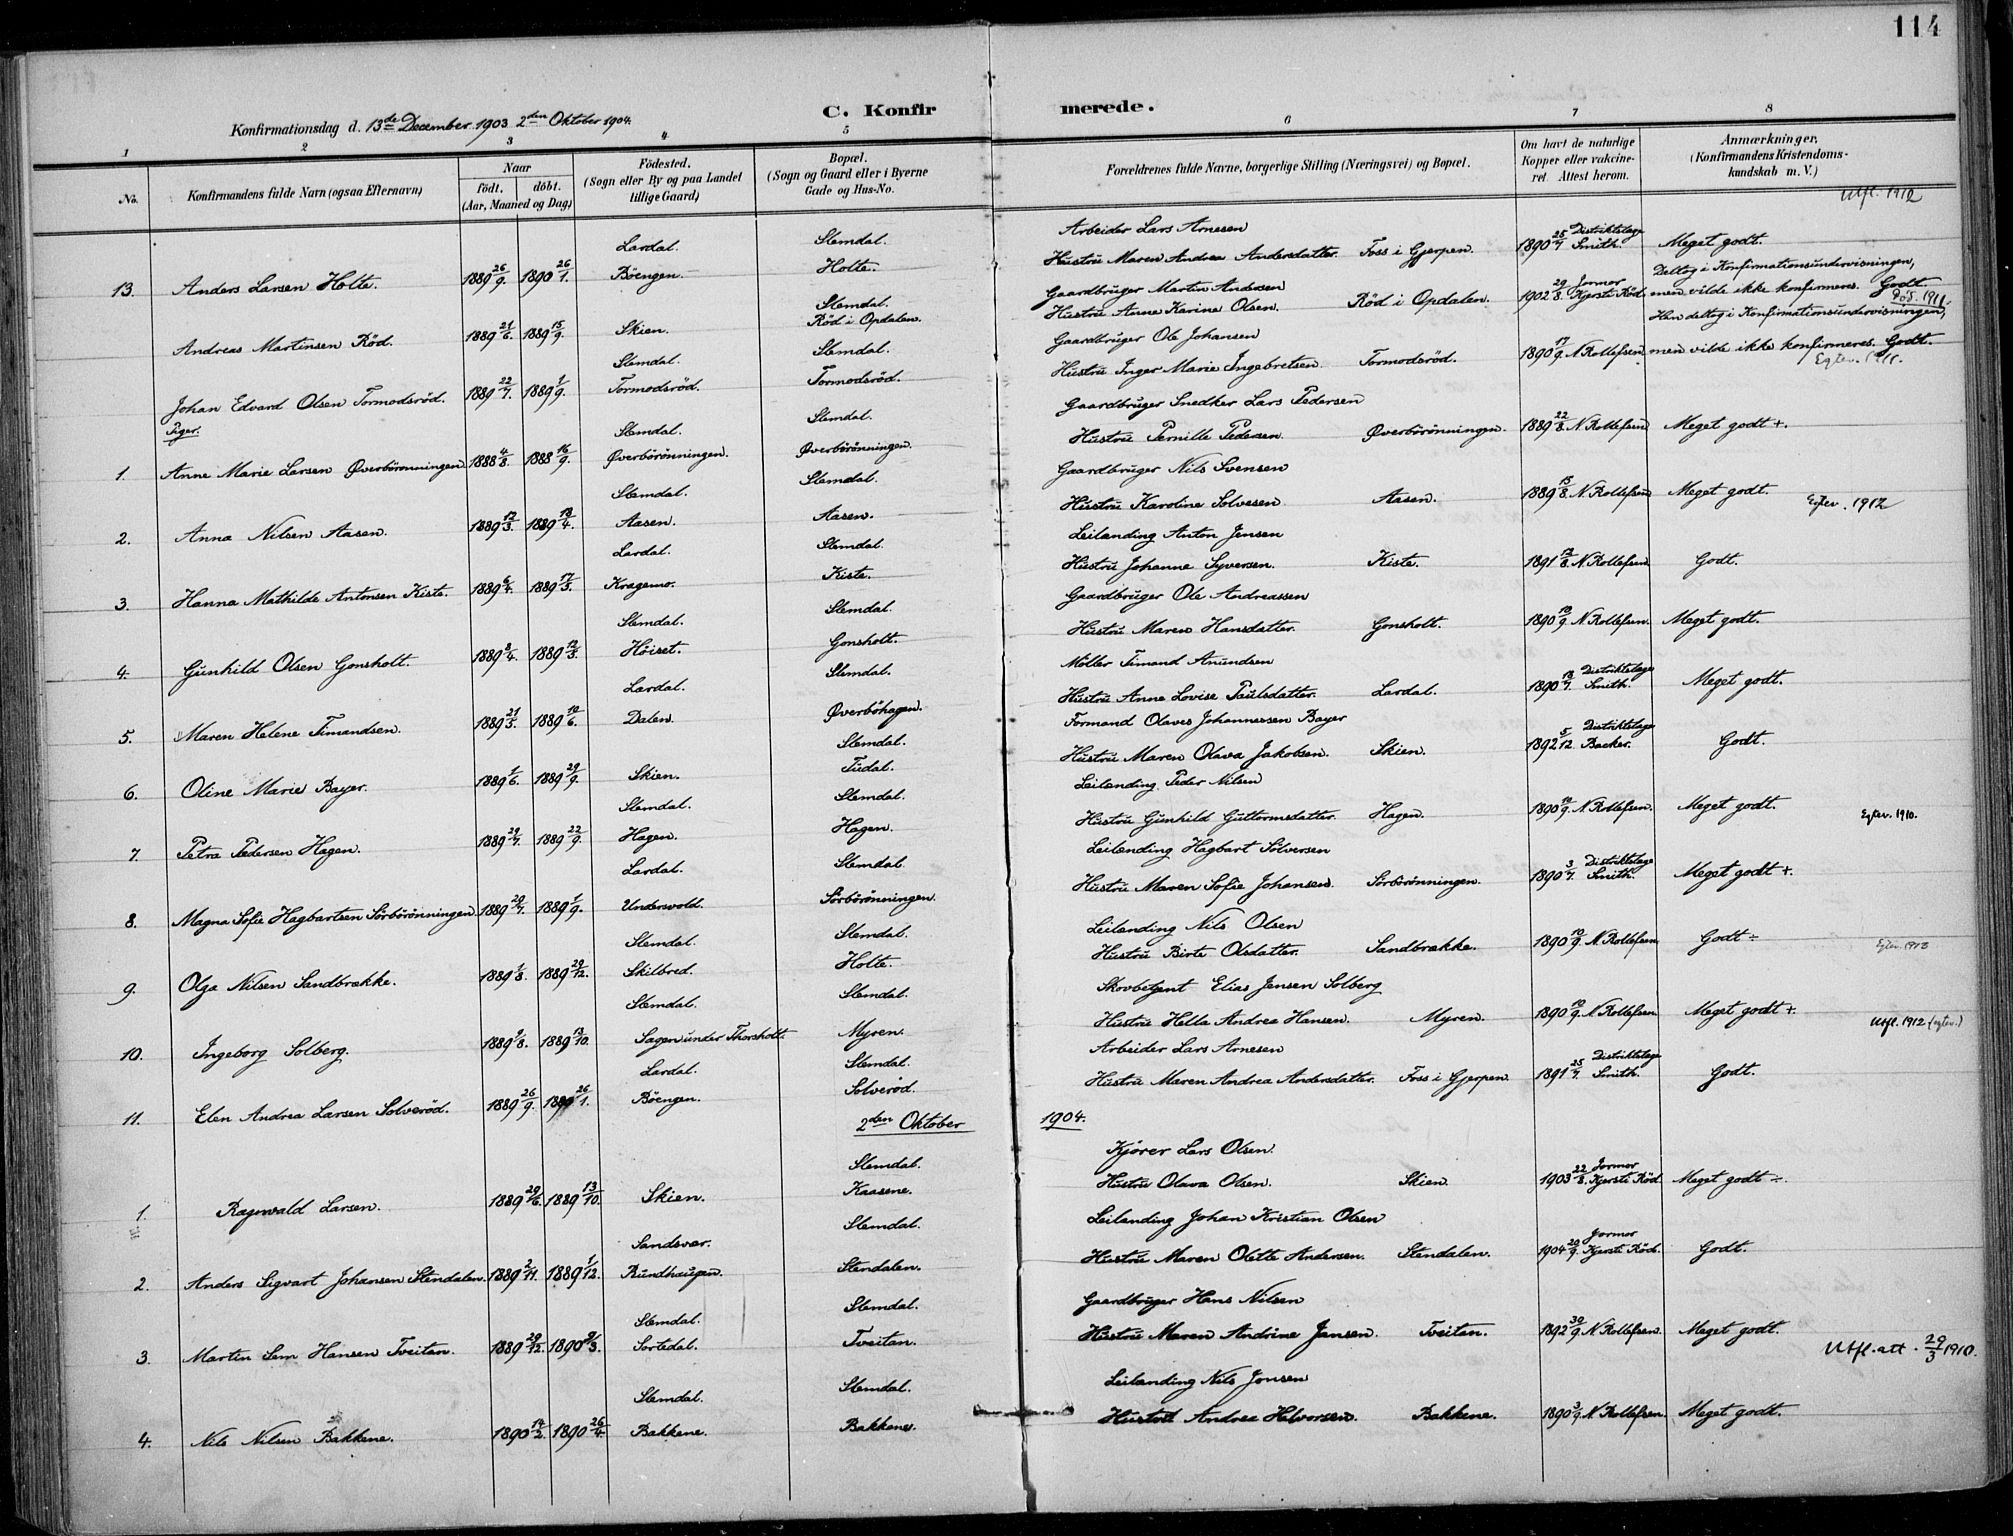 114
C. Konfirmerede.
Konfirmationsdag d. 13de December 1903 2den Oktober 1904.
1 2 3 4 5 6 7 8
No. Konfirmandens fulde Navn (ogsaa Efternavn) Naar födt. döbt. (Aar, Maaned og Dag) Födested. (Sogn eller By og paa Landet tillige Gaard) Bopæl. (Sogn og Gaard eller i Byerne Gade og Hus-No. Forældrenes fulde Navne, borgerlige Stilling (Næringsvei) og Bopæl. Om havt de naturlige Kopper eller vakcineret. Attest herom. Anmærkninger, (Konfirmandens Kristendomskundskab m. V.)
Utfl. 1912
Lardal. Slemdal. Arbeider Lars Arnesen Distriktslæge
13. Anders Larsen Holte. 1889 26/9. 1890 26/1. Böengen. Holte. Hustru Maren Andrea Andersdatter. Foss i Gjerpen. 1890 25/7 Smith. Meget godt.
Slemdal. Gaardbruger Martin Andersen Jormor Deltog i Konfirmationsundervisningen,
Andreas Martinsen Röd. 1889 21/6. 1889 15/9. Skien. Röd i Opdalen. Hustru Anne Karine Olsen. Röd i Opdalen. 1902 29/8. Kjersti Röd. men vilde ikke konfirmeres. Godt.
Död. 1911.
Slemdal. Slemdal. Gaardbruger Ole Johansen Han deltog i Konfirmationsundervisningen,
Johan Edvard Olsen Tormodsröd. 1889 22/7. 1889 1/9. Tormodsröd. Tormodsröd. Hustru Inger Marie Ingebretsen Tormodsröd. 1890 17/9. N Rollefsen men vilde ikke konfirmeres. Godt.
Egtev. 1911.
Piger.
Slemdal. Slemdal. Gaardbruger Snedker Lars Pedersen
1. Anne Marie Larsen Øverbörönningen 1888 4/8. 1888 16/9. Øverbörönningen. Øverbörönningen. Hustru Pernille Pedersen Øverbörönningen. 1889 22/8. N Rollefsen Meget godt +.
Slemdal. Slemdal. Gaardbruger Nils Svensen
2. Anna Nilsen Aasen. 1889 12/3. 1889 13/4. Aasen. Aasen. Hustru Karoline Solvesen Aasen. 1889 15/8. N Rollefsen Meget godt. Egtev. 1912
Lardal. Slemdal. Leilænding Anton Jensen
3. Hanna Mathilde Antonsen Kiste. 1889 6/4. 1889 17/5. Kragemo. Kiste. Hustru Johanne Syversen. Kiste. 1891 12/8. N Rollefsen Godt.
Slemdal. Slemdal. Gaardbruger Ole Andreassen
4. Gunhild Olsen Gonsholt. 1889 3/4. 1889 12/5. Höiset. Gonsholt. Hustru Maren Hansdatter. Gonsholt. 1890 10/9. N Rollefsen. Meget godt.
Lardal. Slemdal. Möller Timand Anundsen Distriktslæge
5. Maren Helene Timandsen. 1889 21/3. 1889 10/6. Dalen. Øverböhagen. Hustru Anne Lovise Paulsdatter. Lardal. 1890 18/7. Smith. Meget godt.
Slemdal. Formand Olaves Johannessen Bayer Distriktslæge
6. Oline Marie Bayer. 1889 1/6. 1889 29/9. Skien. Tudal. Hustru Maren Olava Jakobsen. Skien. 1892 5/12 Backer. Godt.
Slemdal. Slemdal. Leilænding Peder Nilsen
7. Petra Pedersen Hagen. 1889 29/7. 1889 22/9. Hagen. Hagen. Hustru Gunhild Guttormsdatter. Hagen. 1890 10/9. N Rollefsen. Meget godt. Egtev. 1910.
Lardal. Slemdal. Leilænding Hagbart Sölversen Distriktslæge
8. Magna Sofie Hagbartsen Sörbörönningen 1889 20/7. 1889 1/9. Undersvold. Sörbörönningen. Hustru Maren Sofie Johansen. Sörbörönningen. 1890 3/7. Smith. Meget godt +.
Slemdal. Slemdal. Leilænding Nils Olsen
9. Olga Nilsen Sandbrække. 1889 1/8. 1889 29/12. Skilbred. Holte. Hustru Birte Olsdatter. Sandbrække. 1890 10/9. N Rollefsen Godt ÷ Egtev. 1913
Slemdal. Slemdal. Skovbetjent Elias Jensen Solberg
10. Ingeborg Solberg. 1889 9/8. 1889 13/10. Sagen under Thorsholt. Myren. Hustru Hella Andrea Hansen. Myren. 1890 10/9. N Rollefsen. Meget godt +. Utfl. 1912 (egtev.)
Lardal. Slemdal. Arbeider Lars Arnesen Distriktslæge
11. Elen Andrea Larsen Solveröd. 1889 26/9. 1890 26/1. Böengen. Solveröd. Hustru Maren Andrea Andersdatter. Foss i Gjerpen. 1891 25/7. Smith. Godt.
2den Oktober 1904.
Slemdal. Kjörer Lars Olsen. Jormor
1. Ragnvald Larsen. 1889 29/6. 1889 13/10. Skien. Kaasene. Hustru Olava Olsen. Skien. 1903 22/8. Kjersti Röd. Meget godt ÷.
Sandsvær. Slemdal. Leilænding Johan Kristian Olsen Jormor
2. Anders Sigvart Johansen Stendalen. 1889 2/11. 1889 1/12. Rundhaugen. Stendalen. Hustru Maren Olette Andersen. Stendalen. 1904 20/9. Kjersti Röd. Godt.
Slemdal. Slemdal. Gaardbruger Hans Nilsen
3. Martin Sem Hansen Tveitan. 1889 29/12. 1890 9/3. Sortedal. Tveitan. Hustru Maren Andrine Jansen. Tveitan. 1892 30/9. N Rollefsen. Meget godt. Utfl. att. 29/3 1910.
Slemdal. Slemdal. Leilænding Nils Jonsen
4. Nils Nilsen Bakkene. 1890 14/2. 1890 26/4. Bakkene. Bakkene. Hustru Andrea Halvorsen. Bakkene. 1890 3/9. N Rollefsen. Meget godt.